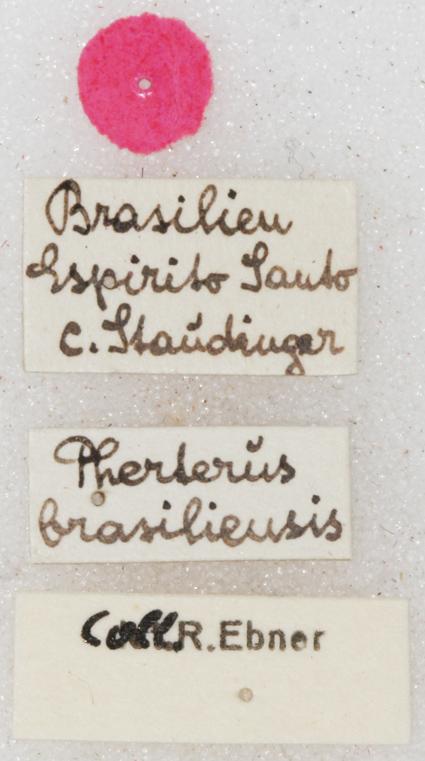 Brasilien
Espirito Santo
c. Staudinger
Pherterus
brasiliensis
Coll. R. Ebner